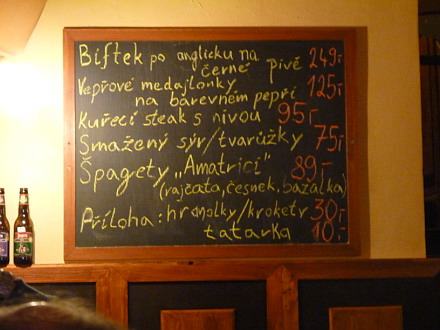 Biftek po anglicku na
černé pivě 249,-
Vepřové medajlonky
na barevném pepři 125,-
Kuřecí steak s nivou 95,-
Smažený sýr/tvarůžky 75,-
Špagety „Amatrici" 89,-
(rajčata, česnek, bazalka)
Příloha: hranolky/krokety 30,-
tatarka 10,-